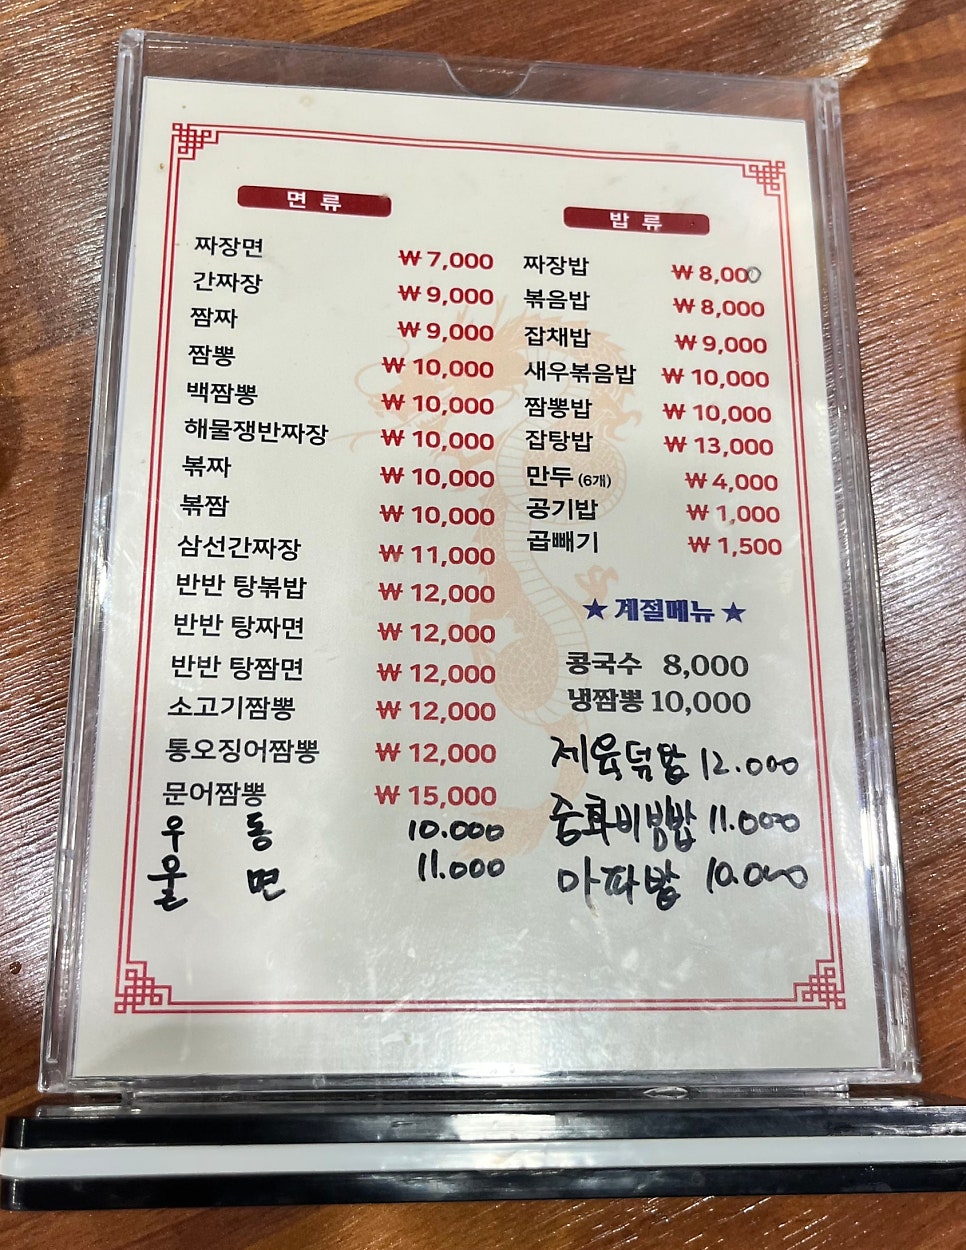 면 류
짜장면 ₩ 7,000
간짜장 ₩ 9,000
짬짜 ₩ 9,000
짬뽕 ₩ 10,000
백짬뽕 ₩ 10,000
해물쟁반짜장 ₩ 10,000
볶짜 ₩ 10,000
볶짬 ₩ 10,000
삼선간짜장 ₩ 11,000
반반 탕볶밥 ₩ 12,000
반반 탕짜면 ₩ 12,000
반반 탕짬면 ₩ 12,000
소고기짬뽕 ₩ 12,000
통오징어짬뽕 ₩ 12,000
문어짬뽕 ₩ 15,000
우 동 10.000
울 면 11.000
밥 류
짜장밥 ₩ 8,000
볶음밥 ₩ 8,000
잡채밥 ₩ 9,000
새우볶음밥 ₩ 10,000
짬뽕밥 ₩ 10,000
잡탕밥 ₩ 13,000
만두 (6개) ₩ 4,000
공기밥 ₩ 1,000
곱빼기 ₩ 1,500
★ 계절메뉴 ★
콩국수 8,000
냉짬뽕 10,000
제육덮밥 12.000
중화비빔밥 11.000
마파밥 10.000